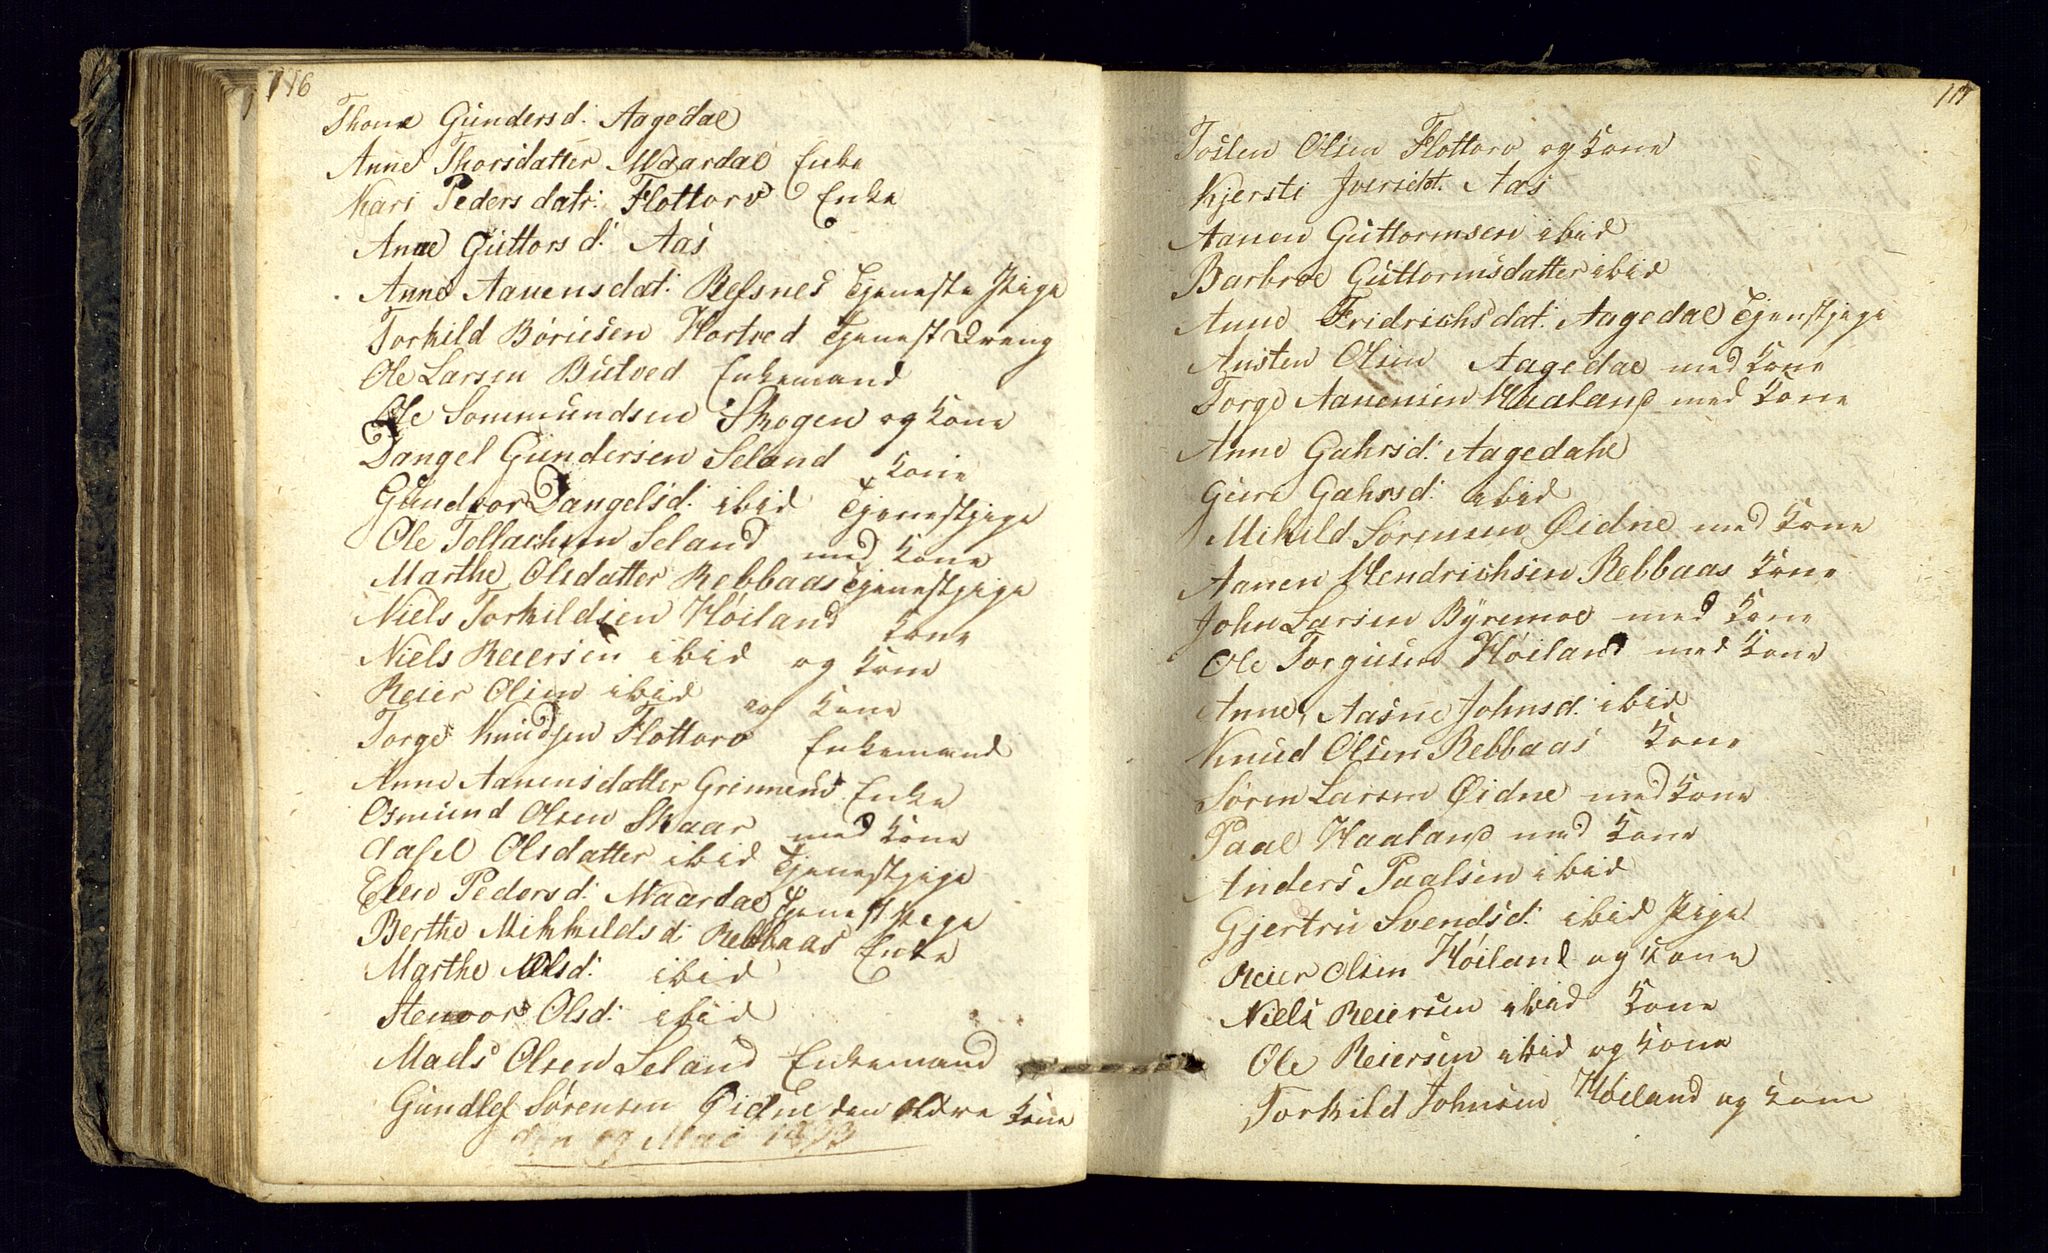 116
Thone Gundersd: Aagedal
Anne Thorsdatter Maardal Enke
Kari Pedersdatr: Flottorv Enke
Anne Guttorsd: Aas
Anne Aanensdat: Refsnes Tjeneste Pige
Torkild Børuisen Hortved Tjenest Dreng
Ole Larsen Butved Enkemand
Ole Sommundsen Skogen og kone
Dangel Gundersen Seland kone
Gundvor Dangelsd: ibid Tjenestpige
Ole Tollachsen Seland med kone
Marthe Olsdatter Rebbaas Tjenestpige
Niels Torkildsen Høiland kone
Niels Reiersen ibid og kone
Reier Olsen ibid og kone
Torge Knudsen Flottorv Enkemand
Anne Aanensdatter Grimmend Enke
Osmund Olsen Skaar med kone
Aasel Olsdatter ibid Tjenestpige
Elen Pedersd: Maardal Tjenest Pige
Berthe Mikkildsd: Rebbaas Enke
Marthe Olsd: ibid
Stenvor Olsd: ibid
Mads Olsen Seland Enkemand
Gundlef Sørensen Øidne den Aldre kone
den 19 Mai 1823
117
Tosten Olsen Flottorv og kone
Kjersti Iversdt. Aas
Aanen Guttormsen ibid
Barbroe Guttormsdatter ibid
Anne Fridrichsdat: Aagedal Tjenstpige
Austen Olsen Aagedal med kone
Torge Aanensen Haaland med kone
Anne Gahrsd: Aagedahl
Guri Gahrsd: ibid
Mikild Sørensen Øidne med kone
Aanen Hendrichsen Rebbaas kone
John Larsen Byremoe med kone
Ole Torgusen Høiland med kone
Anne, Aasne Johnsd: ibid
Knud Olsen Rebbaas kone
Søren Larsen Øidne med kone
Paal Haaland med kone
Anders Paalsen ibid
Gjertru Svendsd: ibid Pige
Reier Olsen Høiland og kone
Niels Reiersen ibid kone
Ole Reiersen ibid og kone
Torkild Johnsen Høiland og kone